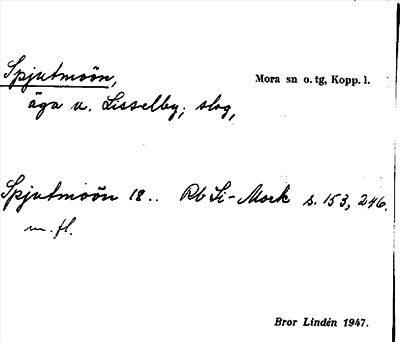 Spjutmoön,
Mora sn o. tg, Kopp. l.
äga u. Lisselby; slog,
Spjutmoön 18.. Rb Si-Mork s. 153, 246.
m. fl.
Bror Lindén 1947.